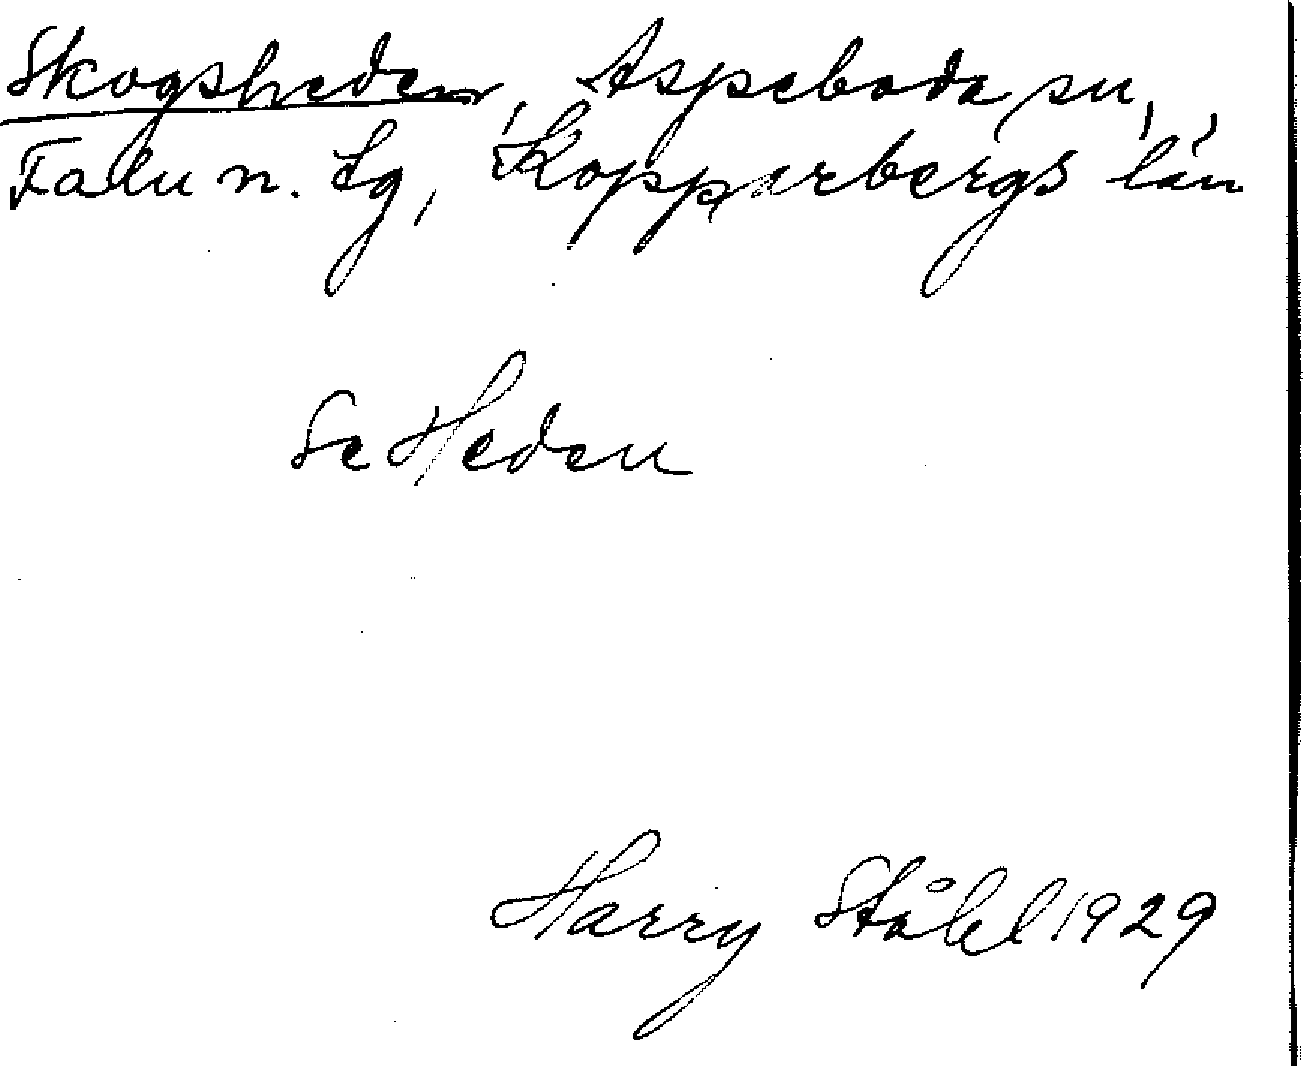 Skogsheden, Aspeboda sn,
Falu n. tg, Kopparbergs län
Se Heden
Harry Ståhl 1929